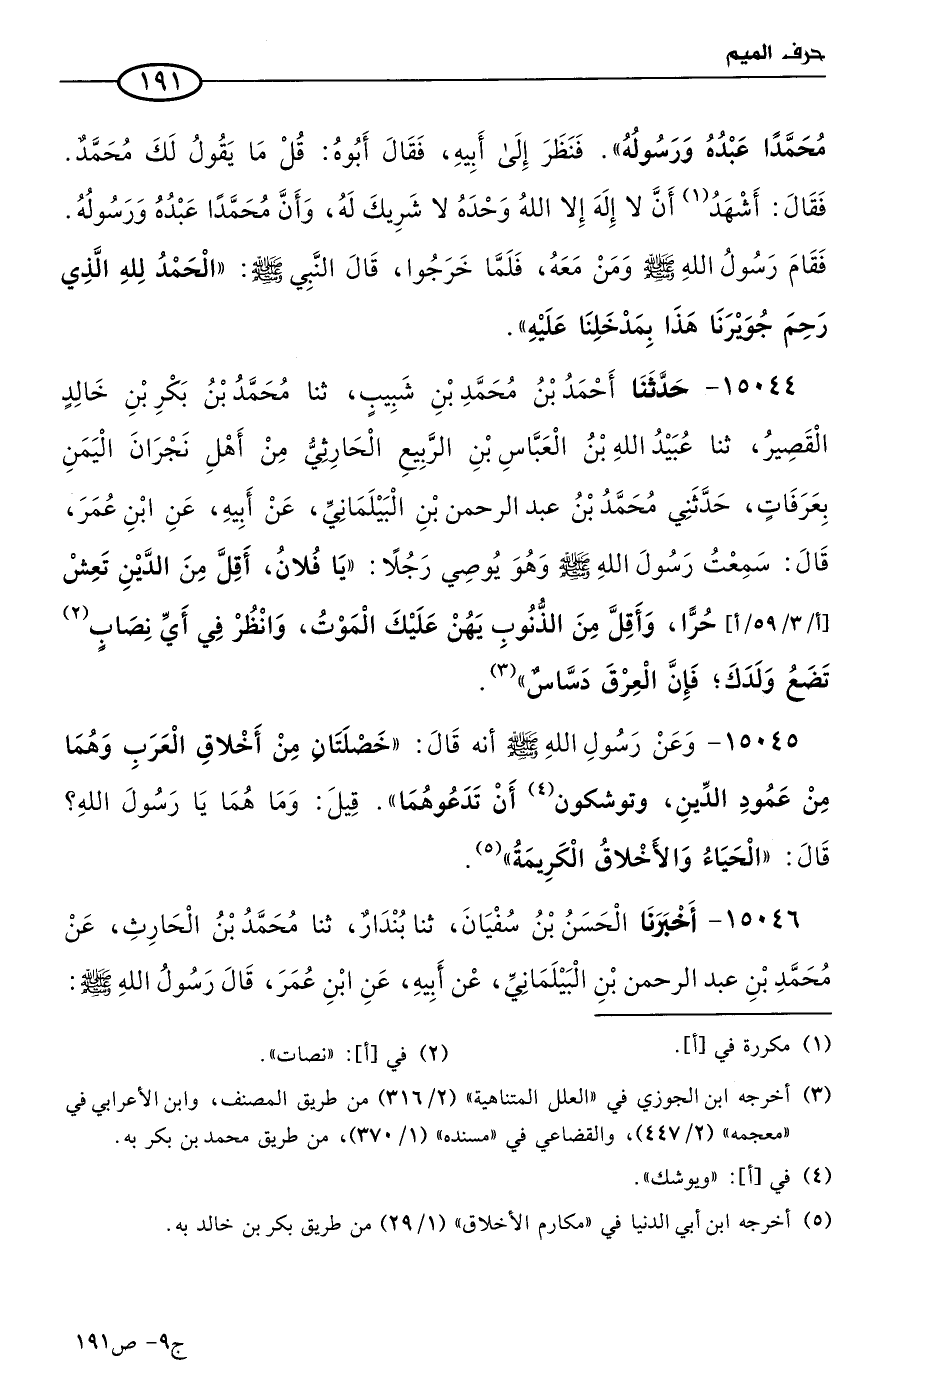 حرف الميم
١٩١
مُحَمَّدًا عَبْدُهُ وَرَسُولُهُ». فَنَظَرَ إِلَىٰ أَبِيهِ، فَقَالَ أَبُوهُ: قُلْ مَا يَقُولُ لَكَ مُحَمَّدٌ.
فَقَالَ: أَشْهَدُ(١) أَنَّ لا إِلَهَ إِلا اللهُ وَحْدَهُ لا شَرِيكَ لَهُ، وَأَنَّ مُحَمَّدًا عَبْدُهُ وَرَسُولُهُ.
فَقَامَ رَسُولُ اللهِ ﷺ وَمَنْ مَعَهُ، فَلَمَّا خَرَجُوا، قَالَ النَّبِي ﷺ: «الْحَمْدُ لِلهِ الَّذِي
رَحِمَ جُوَيْرَنَا هَذَا بِمَدْخَلِنَا عَلَيْهِ».
١٥٠٤٤- حَدَّثَنَا أَحْمَدُ بْنُ مُحَمَّدِ بْنِ شَبِيبٍ، ثنا مُحَمَّدُ بْنُ بَكْرِ بْنِ خَالِدٍ
الْقَصِيرُ، ثنا عُبَيْدُ اللهِ بْنُ الْعَبَّاسِ بْنِ الرَّبِيعِ الْحَارِثِيُّ مِنْ أَهْلِ نَجْرَانَ الْيَمَنِ
بِعَرَفَاتٍ، حَدَّثَنِي مُحَمَّدُ بْنُ عبد الرحمن بْنِ الْبَيْلَمَانِيِّ، عَنْ أَبِيهِ، عَنِ ابْنِ عُمَرَ،
قَالَ: سَمِعْتُ رَسُولَ اللهِ ﷺ وَهُوَ يُوصِي رَجُلًا: «يَا فُلانُ، أَقِلَّ مِنَ الدَّيْنِ تَعِشْ
[أ/٥٩/٣/أ] حُرًّا، وَأَقِلَّ مِنَ الذُّنُوبِ يَهُنْ عَلَيْكَ الْمَوْتُ، وَانْظُرْ فِي أَيِّ نِصَابٍ(٢)
تَضَعُ وَلَدَكَ؛ فَإِنَّ الْعِرْقَ دَسَّاسٌ»(٣).
١٥٠٤٥- وَعَنْ رَسُولِ اللهِ ﷺ أنه قَالَ: «خَصْلَتَانِ مِنْ أَخْلاقِ الْعَرَبِ وَهُمَا
مِنْ عَمُودِ الدِّينِ، وتوشكون(٤) أَنْ تَدَعُوهُمَا». قِيلَ: وَمَا هُمَا يَا رَسُولَ اللهِ؟
قَالَ: «الْحَيَاءُ وَالأَخْلاقُ الْكَرِيمَةُ»(٥).
١٥٠٤٦- أَخْبَرَنَا الْحَسَنُ بْنُ سُفْيَانَ، ثنا بُنْدَارٌ، ثنا مُحَمَّدُ بْنُ الْحَارِثِ، عَنْ
مُحَمَّدِ بْنِ عبد الرحمن بْنِ الْبَيْلَمَانِيِّ، عْن أَبِيهِ، عَنِ ابْنِ عُمَرَ، قَالَ رَسُولُ اللهِ ﷺ:
(١) مكررة في [أ]. (٢) في [أ]: «نصات».
(٣) أخرجه ابن الجوزي في «العلل المتناهية» (٣١٦/٢) من طريق المصنف، وابن الأعرابي في
«معجمه» (٤٤٧/٢)، والقضاعي في «مسنده» (٣٧٠/١)، من طريق محمد بن بكر به.
(٤) في [أ]: «ويوشك».
(٥) أخرجه ابن أبي الدنيا في «مكارم الأخلاق» (٢٩/١) من طريق بكر بن خالد به.
ج٩- ص١٩١